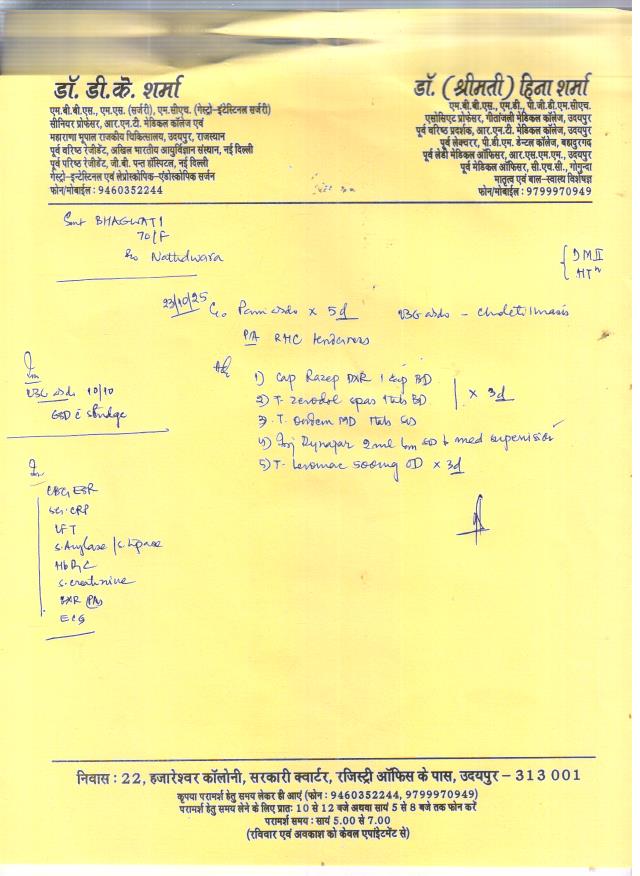 डॉ. डी.कॆ. शर्मा
एम.बी.बी.एस., एम.एस. (सर्जरी), एम.सीएच. (गेस्ट्रो-इंटेस्टिनल सर्जरी)
सीनियर प्रोफेसर, आर.एन.टी. मेडिकल कॉलेज एवं
महाराणा भूपाल राजकीय चिकित्सालय, उदयपुर, राजस्थान
पूर्व वरिष्ठ रेजीडेंट, अखिल भारतीय आयुर्विज्ञान संस्थान, नई दिल्ली
पूर्व वरिष्ठ रेजीडेंट, जी.बी. पन्त हॉस्पिटल, नई दिल्ली
गेस्ट्रो-इन्टेस्टिनल एवं लेप्रोस्कोपिक-एंडोस्कोपिक सर्जन
फोन/मोबाईल : 9460352244
डॉ. (श्रीमती) हिना शर्मा
एम.बी.बी.एस., एम.डी., पी.जी.डी.एम.सीएच.
एसोसिएट प्रोफेसर, गीतांजली मेडिकल कॉलेज, उदयपुर
पूर्व वरिष्ठ प्रदर्शक, आर.एन.टी. मेडिकल कॉलेज, उदयपुर
पूर्व लेक्चरर, पी.डी.एम. डेन्टल कॉलेज, बहादुरगढ़
पूर्व लेडी मेडिकल ऑफिसर, आर.एस.एम.एम., उदयपुर
पूर्व मेडिकल ऑफिसर, सी.एच.सी., गोगुन्दा
मातृत्व एवं बाल-स्वास्थ्य विशेषज्ञ
फोन/मोबाईल : 9799970949
Smt BHAGWATI
70/F
Nathdwara
DM II
HTn
23/10/25 C/o Pain abdo x 5d USG abdo - cholelithiasis
P/A RHC tenderness
USG abdo 10/10
GBD c sludge
Adv
1) Cap Razep DXR 1 cap BD
2) T- Zerodol spas 1 tab BD x 3d
3) T. Ondem MD 1 tab
4) Inj Dynapar 2ml Im OD med supervision
5) T- Levomac 500mg OD x 3d
CBC, ESR
Ser. CRP
LFT
S. Amylase / S. Lipase
HbA1C
S. creatinine
CXR (PA)
ECG
निवास : 22, हजारेश्वर कॉलोनी, सरकारी क्वार्टर, रजिस्ट्री ऑफिस के पास, उदयपुर – 313 001
कृपया परामर्श हेतु समय लेकर ही आएं (फोन : 9460352244, 9799970949)
परामर्श हेतु समय लेने के लिए प्रातः 10 से 12 बजे अथवा सायं 5 से 8 बजे तक फोन करें
परामर्श समय : सायं 5.00 से 7.00
(रविवार एवं अवकाश को केवल एपांइटमेंट से)